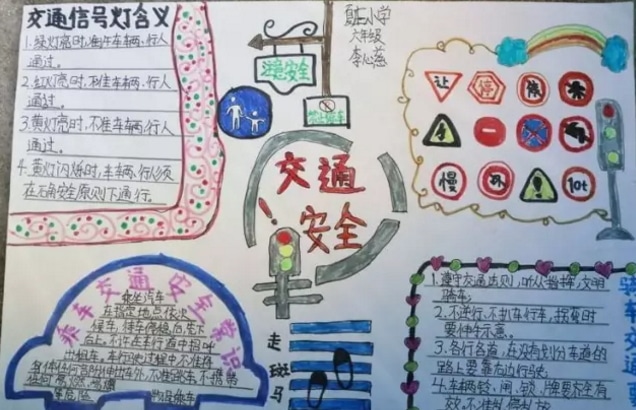 交通信号灯含义
1.绿灯亮时,准许车辆、行人
通过。
2.红灯亮时,不准车辆、行人
通过。
3.黄灯亮时,不准车辆、行人
通过。
4.黄灯闪烁时,车辆、行人须
安全原则下通行。
注意安全
禁止停车
小学
六年级
李心慈
让
停
慢
10t
交通
安全
乘车交通安全常识
乘坐汽车
在指定地点依次
候车,待车停稳后先下
走斑马
1.遵守交通法则,听从指挥,文明
骑车。
2.不逆行、不扒车行车,拐弯时
要伸手示意。
3.各行各道,在没有划分车道的
路上要靠右边行驶。
4.车辆铃、闸、锁、牌要齐全有
骑车交通